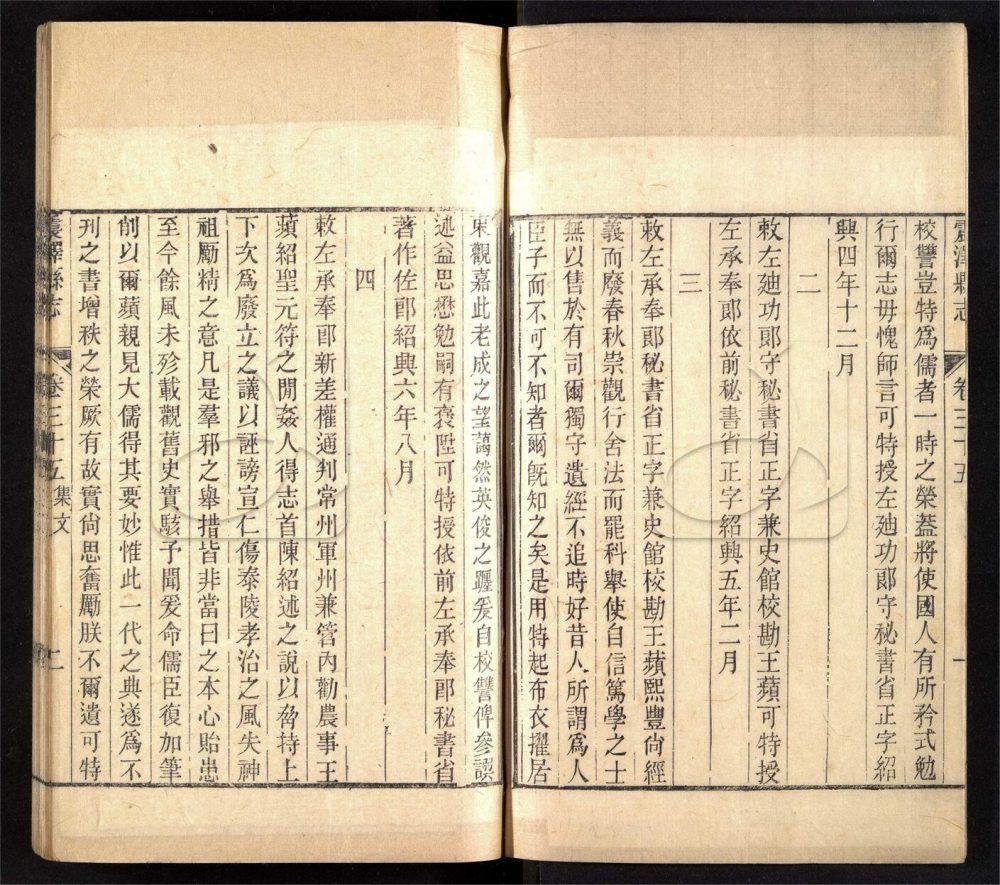 震澤縣志 卷三十五 一
校讐豈特爲儒者一時之榮蓋將使國人有所矜式勉
行爾志毋愧師言可特授左廸功郎守秘書省正字紹
興四年十二月
二
敕左廸功郎守秘書省正字兼史館校勘王蘋可特授
左承奉郎依前秘書省正字紹興五年二月
三
敕左承奉郎秘書省正字兼史館校勘王蘋熙豐尙經
義而廢春秋崇觀行舍法而罷科舉使自信篤學之士
無以售於有司爾獨守遺經不追時好昔人所謂爲人
臣子而不可不知者爾旣知之矣是用特起布衣擢居
東觀嘉此老成之望藹然英俊之躔爰自校讐俾參譔
述益思懋勉嗣有褒陞可特授依前左承奉郎秘書省
著作佐郎紹興六年八月
四
敕左承奉郎新差權通判常州軍州兼管內勸農事王
蘋紹聖元符之閒姦人得志首陳紹述之說以脅持上
下次爲廢立之議以誣謗宣仁傷泰陵孝治之風失神
祖厲精之意凡是羣邪之舉措皆非當日之本心貽患
至今餘風未殄載觀舊史實駭予聞爰命儒臣復加筆
削以爾蘋親見大儒得其要妙惟此一代之典遂爲不
刋之書增秩之榮厥有故實尙思奮勵朕不爾遺可特
震澤縣志 卷三十五 集文 二